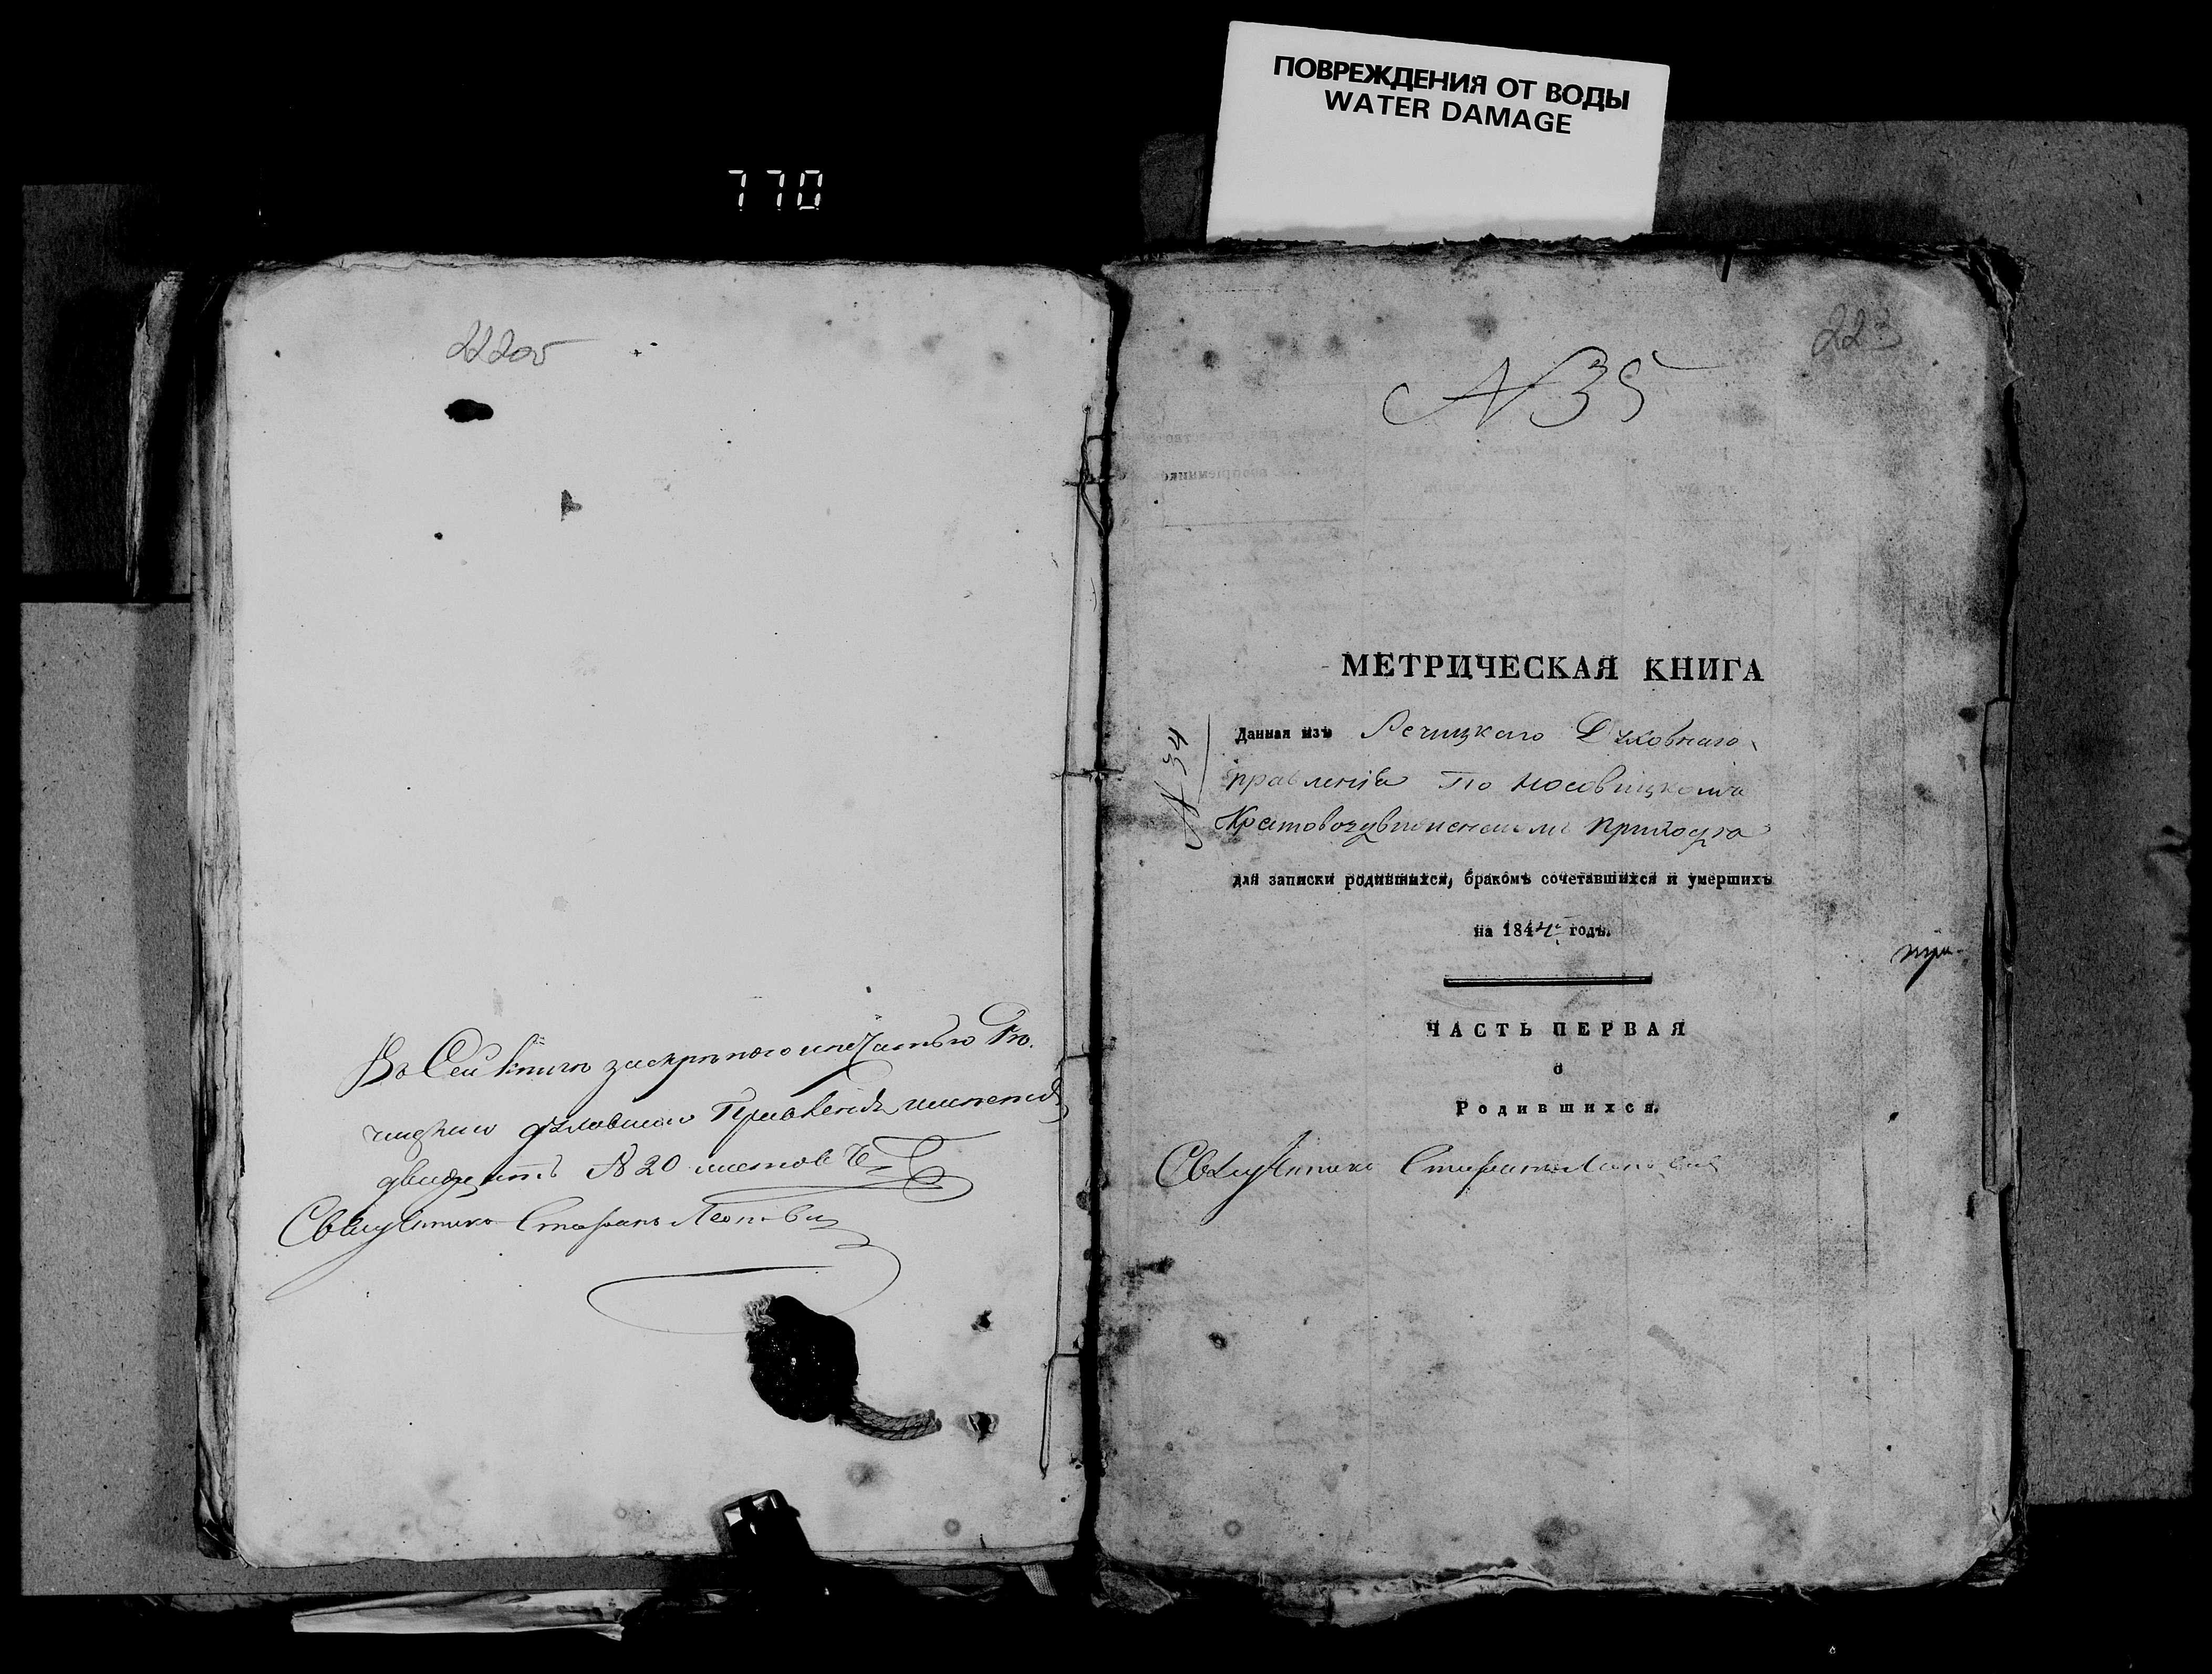 ПОВРЕЖДЕНИЯ ОТ ВОДЫ
WATER DAMAGE
770
222об
Въ Сей книги за скрепою и печатью Ре-
чицкаго духовнаго Правленія имеется
двадцать № 20 листовъ
Священникъ Стефанъ
223
№ 35
МЕТРИЧЕСКАЯ КНИГА
№ 34
Данная изъ Речицкаго Духовнаго
правленія По Носовицкому
Крестовоздвиженскому приходу
для записки родившихся, бракомъ сочетавшихся и умершихъ
на 1844 годъ.
при
ЧАСТЬ ПЕРВАЯ
о
Родившихся.
Священникъ Стефанъ